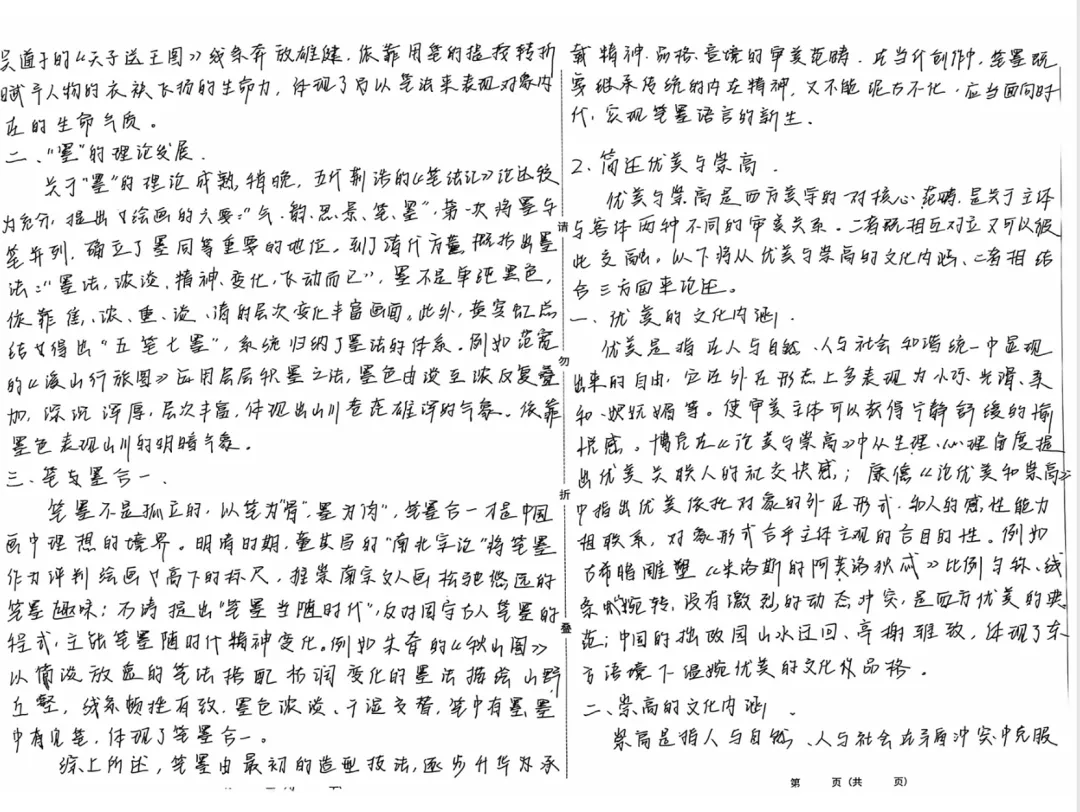 吴道子的《天子送王图》线条奔放雄健，依靠用笔的提按转折
赋予人物的衣袂飞扬的生命力，体现了以笔法来表现对象内
在的生命气质。
二、"墨"的理论发展.
关于"墨"的理论成熟稍晚，五代荆浩的《笔法记》论述较
为充分，提出了绘画的六要："气、韵、思、景、笔、墨"，第一次将墨与
笔并列，确立了墨同等重要的地位。到了清代方薰，概括出墨
法："墨法，浓淡、精神、变化、飞动而已"，墨不是单纯黑色，
依靠焦、浓、重、淡、清的层次变化丰富画面。此外，黄宾虹总
结得出"五笔七墨"，系统归纳了墨法的体系。例如范宽
的《溪山行旅图》应用层层积墨之法，墨色由淡至浓反复叠
加，深沉浑厚，层次丰富，体现出山川苍茫雄浑的气象。依靠
墨色表现山川的明暗气象。
三、笔与墨合一.
笔墨不是孤立的，以笔为"骨"，墨为"肉"，笔墨合一才是中国
画中理想的境界。明清时期，董其昌的"南北宗论"将笔墨
作为评判绘画高下的标尺，推崇南宗文人画松弛悠远的
笔墨趣味；石涛提出"笔墨当随时代"，反对固守古人笔墨的
程式，主张笔墨随时代精神变化。例如朱耷的《秋山图》
以简淡放逸的笔法搭配枯润变化的墨法描绘山野
丘壑，线条顿挫有致，墨色浓淡、干湿交替，笔中有墨，墨
中有见笔，体现了笔墨合一。
综上所述，笔墨由最初的造型技法，逐步升华为承
载精神、品格、意境的审美范畴。在当代创作中，笔墨既
要继承传统的内在精神，又不能泥古不化，应当面向时
代，实现笔墨语言的新生.
2.简述优美与崇高.
优美与崇高是西方美学的一对核心范畴，是关于主体
与客体两种不同的审美关系。二者既相互对立又可以彼
此交融，以下将从优美与崇高的文化内涵、二者相结
合三方面来论述。
一、优美的文化内涵.
优美是指在人与自然、人与社会和谐统一中显现
出来的自由，它在外在形态上多表现为小巧、光滑、柔
和、妩媚等。使审美主体可以获得宁静舒缓的愉
悦感。博克在《论美与崇高》中从生理、心理角度提
出优美关联人的社交快感；康德《论优美和崇高》
中指出优美依托对象的外在形式，和人的感性能力
相联系，对象形式合乎主体主观的合目的性。例如
古希腊雕塑《米洛斯的阿芙洛狄忒》比例匀称、线
条婉转，没有激烈的动态冲突，是西方优美的典
范；中国的拙政园山水迂回、亭榭雅致，体现了东
方语境下温婉优美的文化品格。
二、崇高的文化内涵.
崇高是指人与自然、人与社会在矛盾冲突中克服
请
勿
折
叠
第 页(共 页)